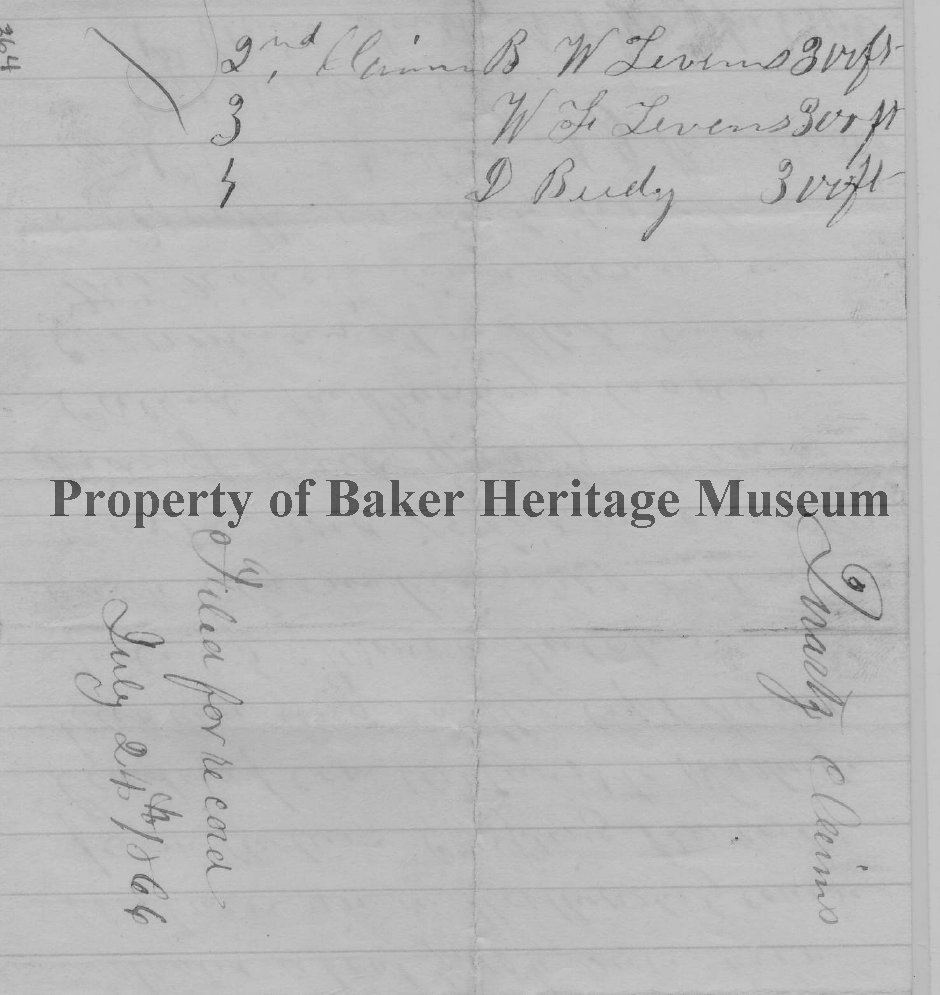 364
2nd, Claim B W Levens 300 ft
3 W F Levens 300 ft
4 D Beedy 300 ft
Property of Baker Heritage Museum
Quartz Claims
Filed for record
July 24th 1866